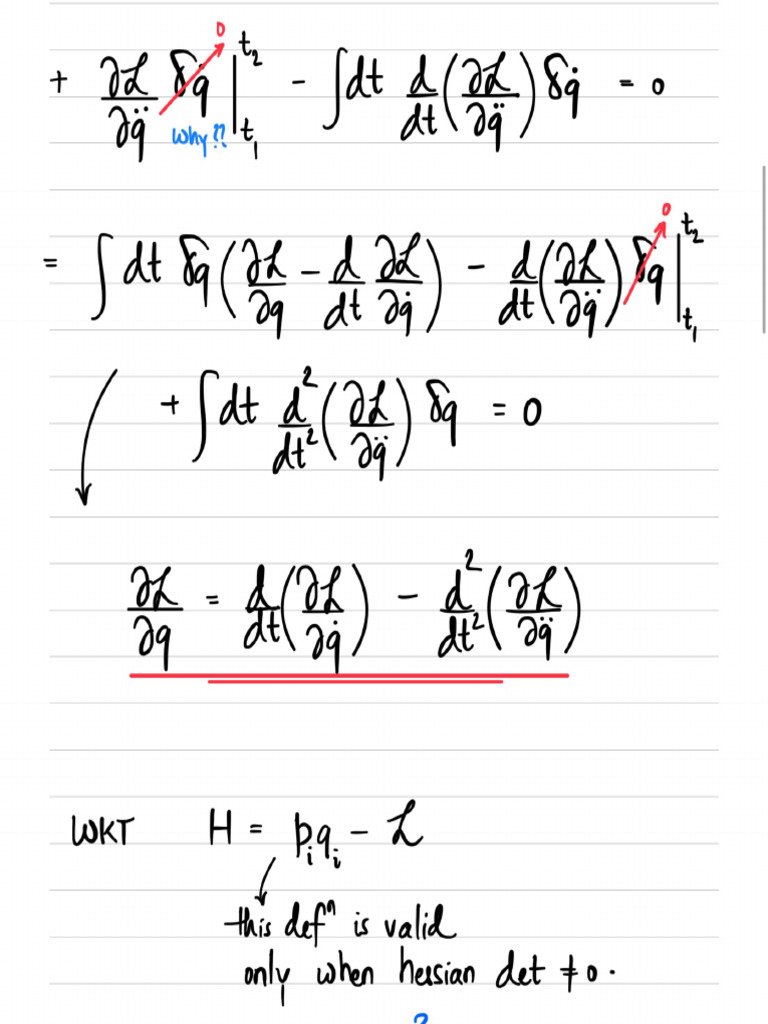 + ∂ℒ/∂q̈ δq̇ |_{t₁}^{t₂} - ∫dt d/dt(∂ℒ/∂q̈) δq̇ = 0
0
why??
= ∫dt δq(∂ℒ/∂q - d/dt ∂ℒ/∂q̇) - d/dt(∂ℒ/∂q̈) δq |_{t₁}^{t₂}
0
+ ∫dt d²/dt²(∂ℒ/∂q̈) δq = 0
∂ℒ/∂q = d/dt(∂ℒ/∂q̇) - d²/dt²(∂ℒ/∂q̈)
WKT H = pᵢqᵢ - ℒ
this defⁿ is valid
only when hessian det ≠ 0.